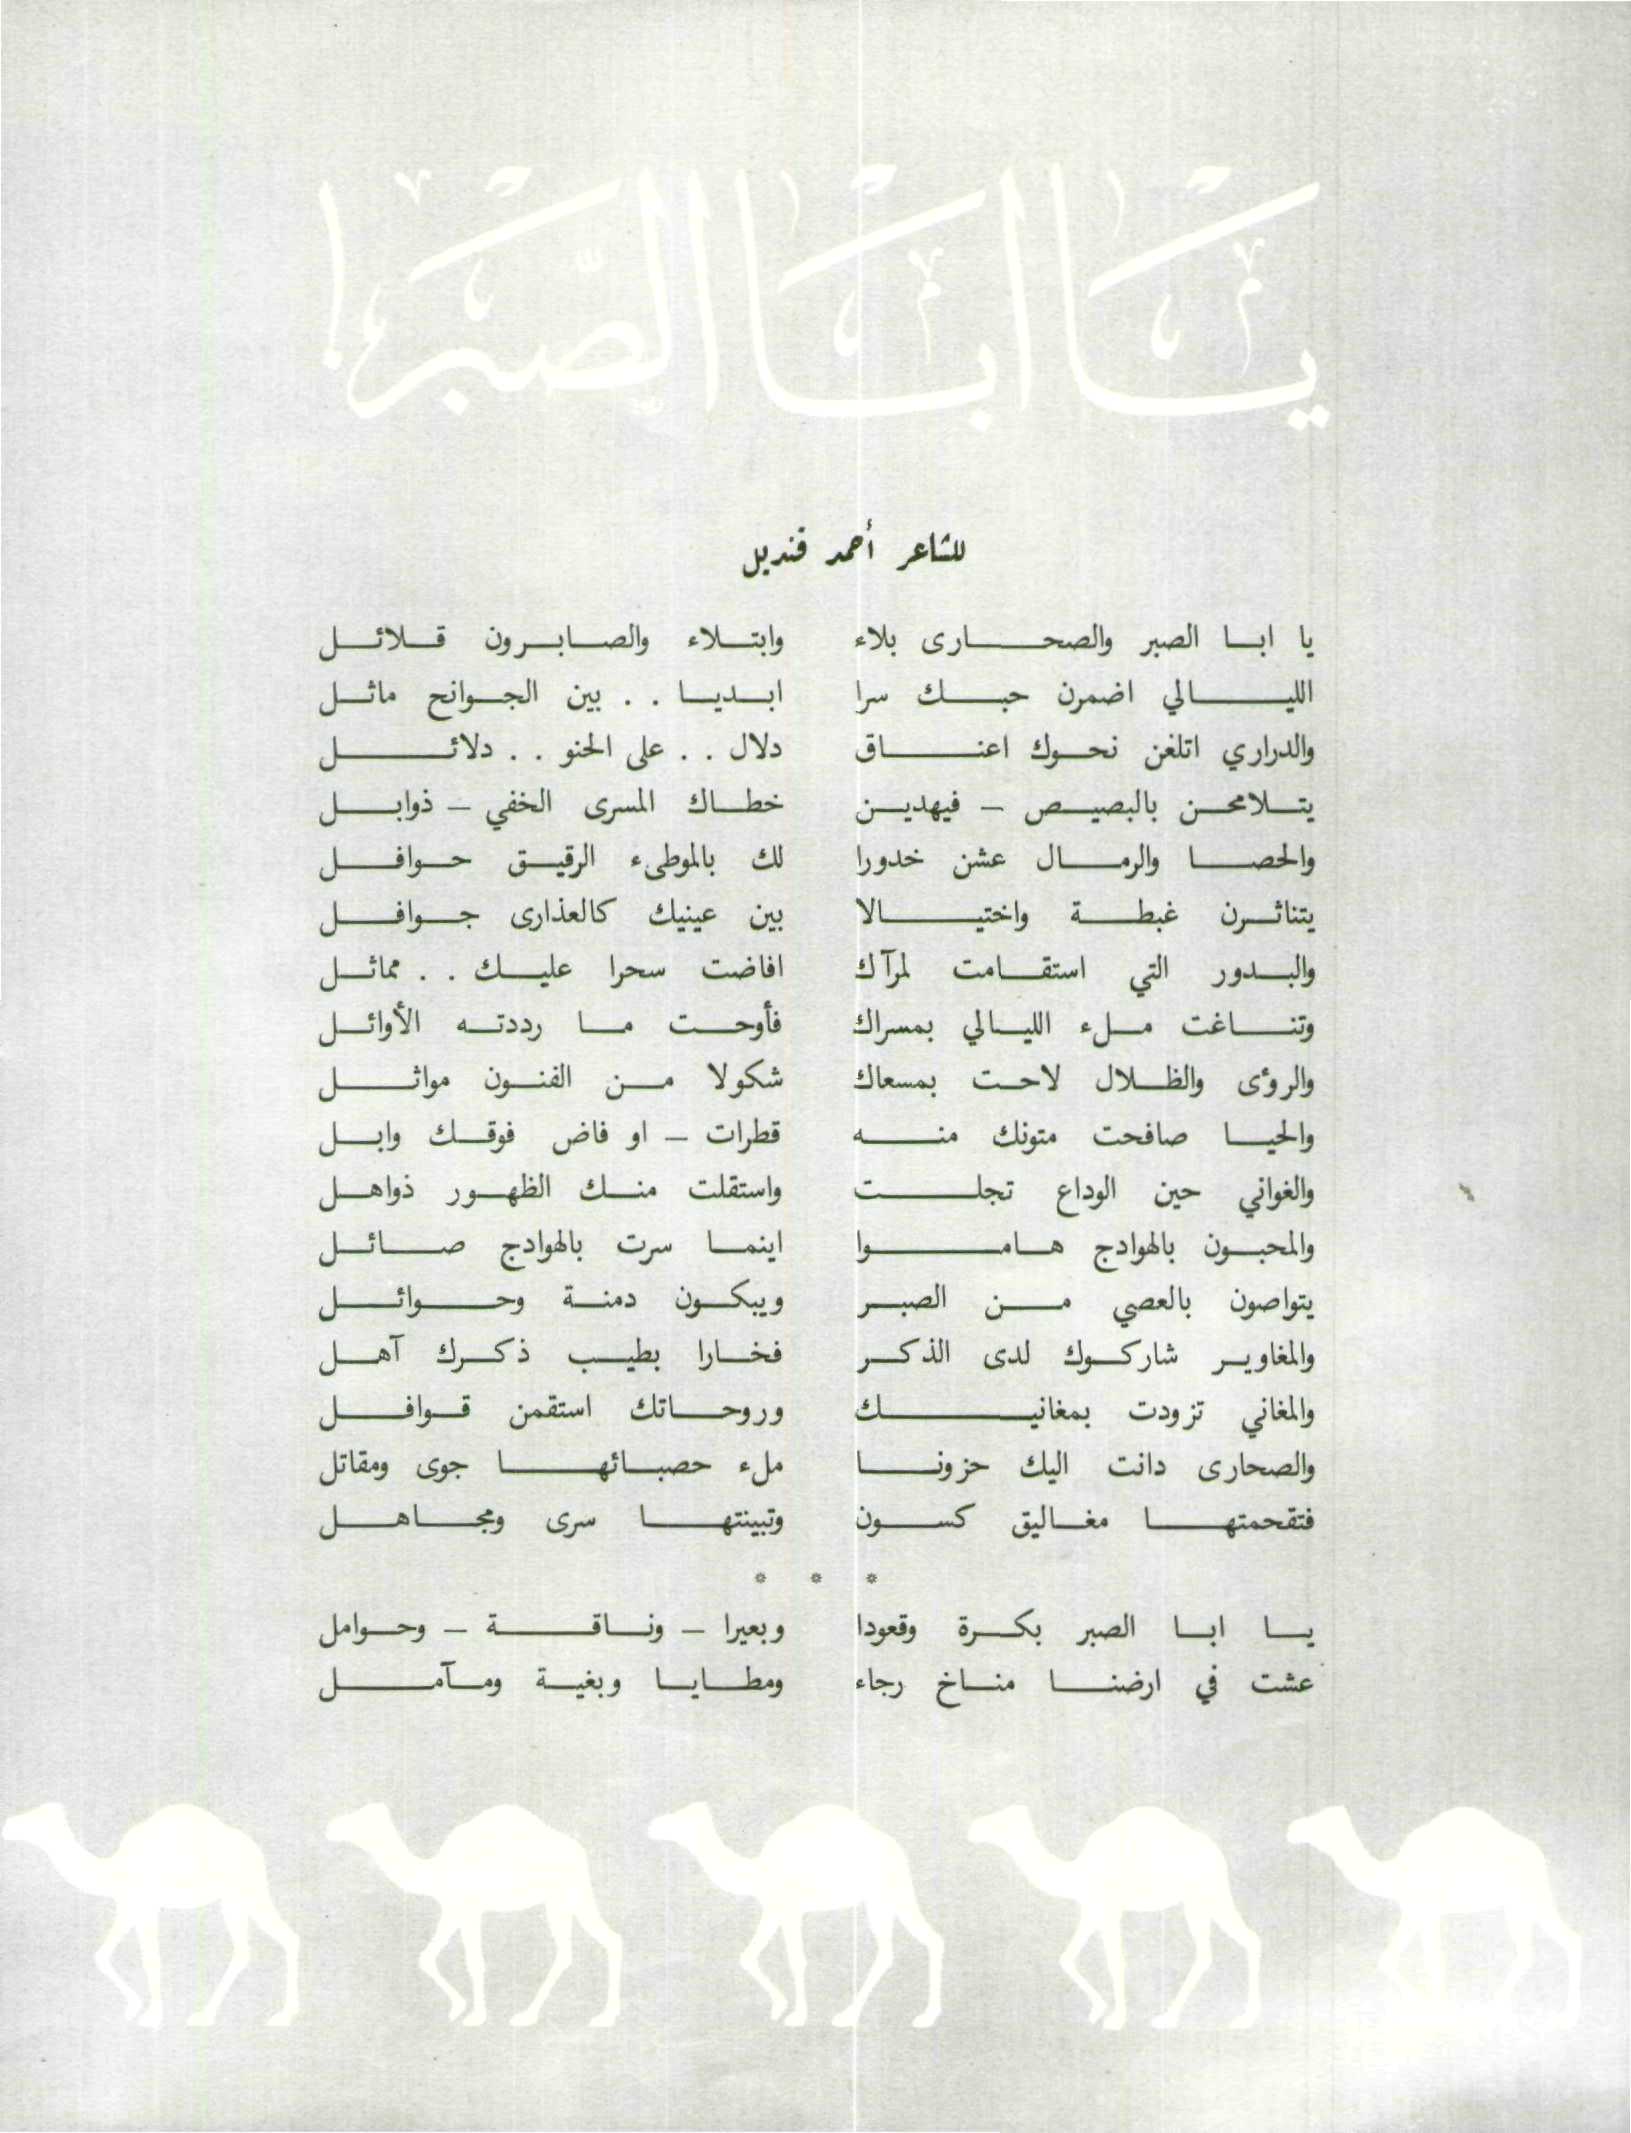 يَا ابَا الصَّبْر !
للشاعر أحمد قنديل
يا ابا الصبر والصحارى بلاء وابتلاء والصابرون قلائل
الليالي اضمرن حبك سرا ابديا . . بين الجوانح ماثل
والدراري اتلغن نحوك اعناق دلال . . على الحنو . . دلائل
يتلامحن بالبصيص – فيهدين خطاك المسرى الخفي – ذوابل
والحصا والرمال عشن خدورا لك بالموطىء الرقيق حوافل
يتناثرن غبطة واختيالا بين عينيك كالعذارى جوافل
والبدور التي استقامت لمرآك افاضت سحرا عليك . . مماثل
وتناغت ملء الليالي بمسراك فأوحت ما رددته الأوائل
والروٴى والظلال لاحت بمسعاك شكولا من الفنون مواثل
والحيا صافحت متونك منه قطرات – او فاض فوقك وابل
والغواني حين الوداع تجلت واستقلت منك الظهور ذواهل
والمحبون بالهوادج هاموا اينما سرت بالهوادج صائل
يتواصون بالعصي من الصبر ويبكون دمنة وحوائل
والمغاوير شاركوك لدى الذكر فخارا بطيب ذكرك آهل
والمغاني تزودت بمغانيك وروحاتك استقمن قوافل
والصحارى دانت اليك حزونا ملء حصبائها جوى ومقاتل
فتقحمتها مغاليق كسون وتبينتها سرى ومجاهل
* * *
يا ابا الصبر بكرة وقعودا وبعيرا – وناقة – وحوامل
عشت في ارضنا مناخ رجاء ومطايا وبغية ومآمل